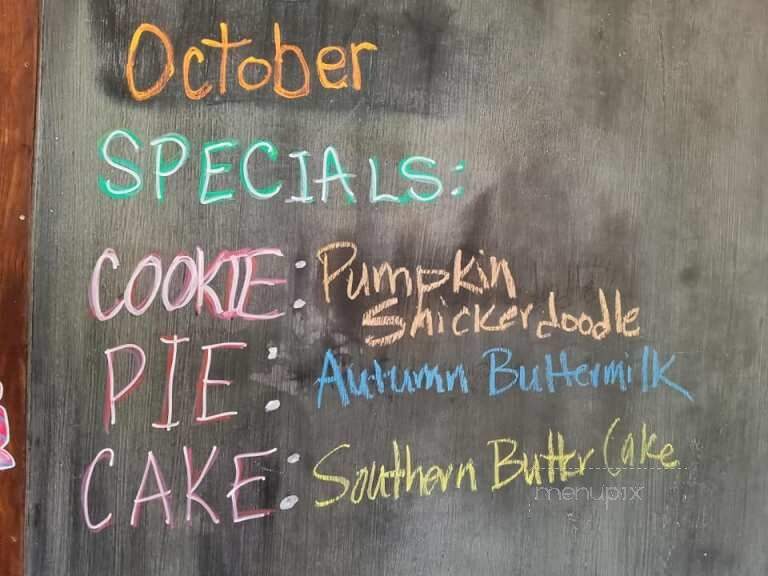 October
SPECIALS:
COOKIE: Pumpkin
Snickerdoodle
PIE: Autumn Buttermilk
CAKE: Southern Butter Cake
menupix